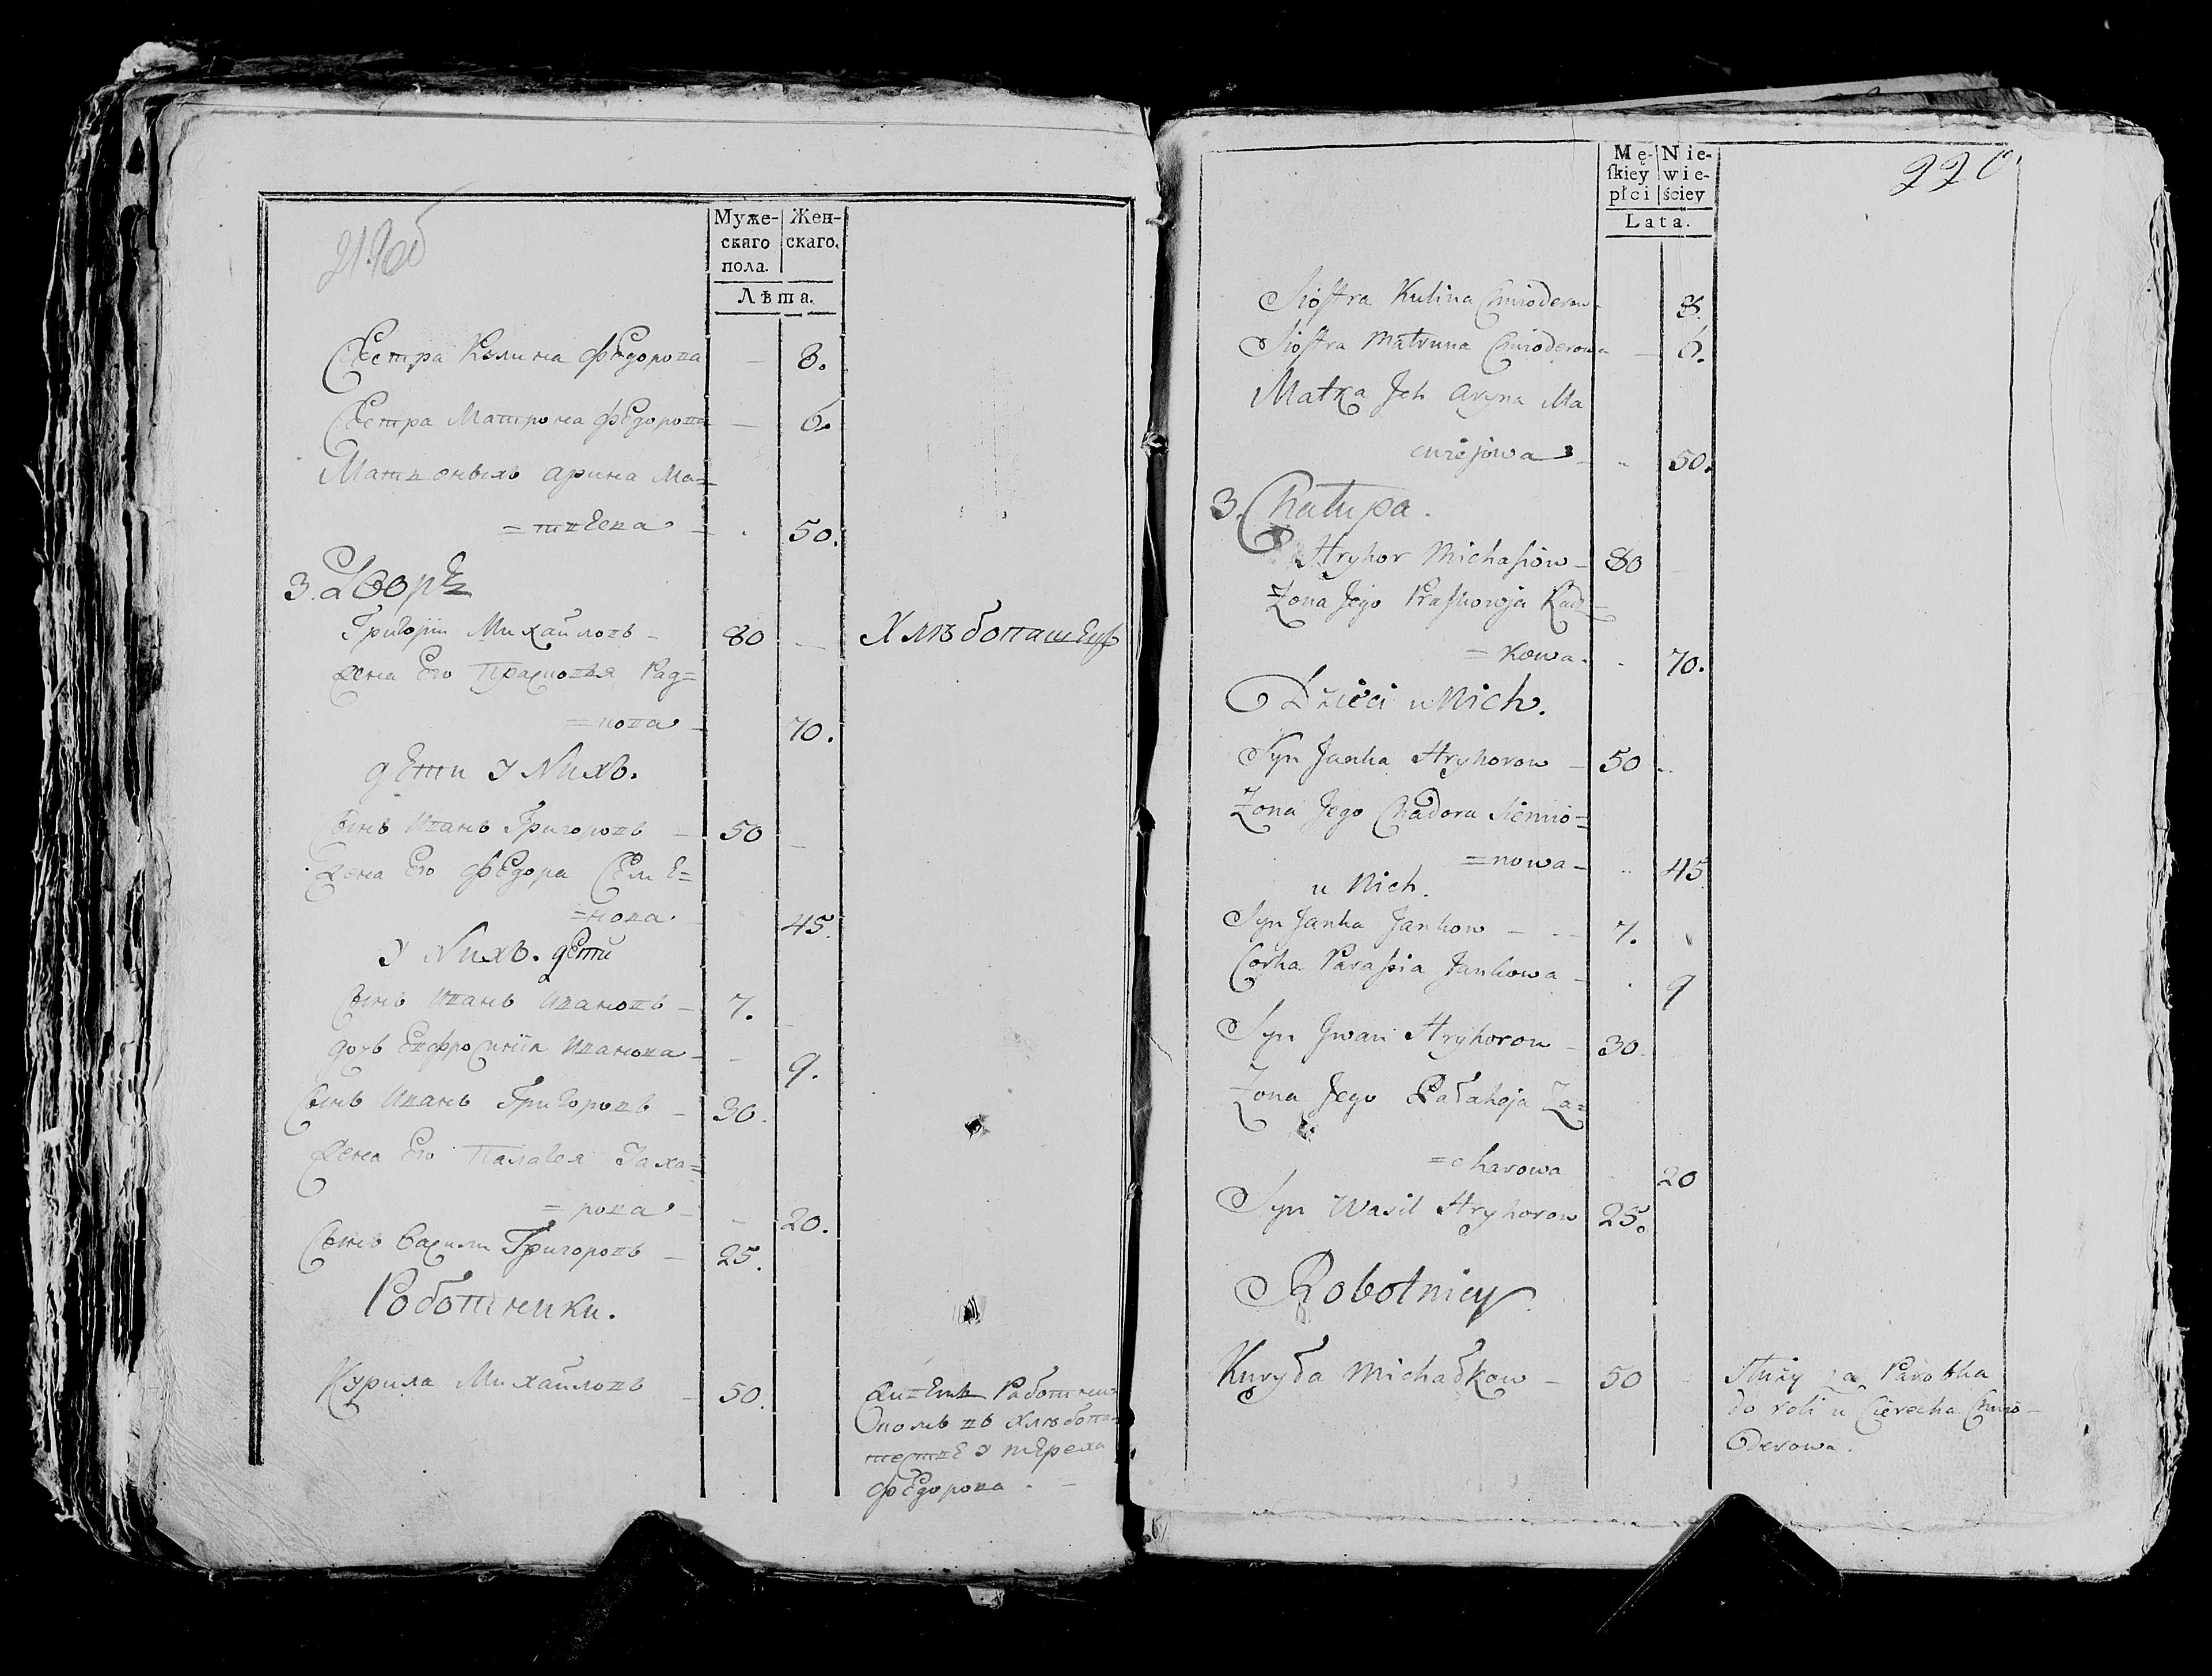 219об
Муже-
скаго
пола.
Жен-
скаго.
Лѣта.
Сестра Кулина Федорова — 8.
Сестра Матрона Федорова — 6.
Мать оныхъ Арина Ма=
=твеева — 50.
3. Дворъ
Григорій Михайловъ — 80 — Хлѣбопашецъ
Жена Его Прасковья Рад=
=кова — 70.
дети У Нихъ.
Сынъ Иванъ Григоровъ — 50
Жена Его Федора Семе=
=нова 45.
У Нихъ. дети
Сынъ Иванъ Ивановъ — 7.
дочь Евфросинія Иванова — 9.
Сынъ Иванъ Григоровъ — 30.
Жена Его Палагея Заха=
=рова — 20.
Сынъ Василий Григоровъ — 25.
Работники.
Курила Михайловъ — 50.
Живетъ Работни
хлѣбопа
У Тереха
Федорова. —
Mę-
skiey
płci
Nie-
wie-
ściey
Lata.
220
Siostra Kulina Chwioderow 8.
Siostra Matruna Chwioderowa — 6.
Matka Jch Aryna Ma
cwiejowa — 50.
3. Chatupa.
Hryhor Michasiow — 80
Żona Jego Praskowja Rad=
=kowa. 70.
Dzieci u Nich.
Syn Janka Hryhorow — 50
Żona Jego Chadora Siemio=
=nowa — 45
u Nich.
Syn Janka Jankow — 7.
Corka Parasia Jankowa — 9
Syn Jwan Hryhorow — 30.
Żona Jego Pałaheja Za=
=charowa 20
Syn Wasil Hryhorow 25.
Robotnicy
Kuryła Michałkow — 50
Służy za Parobka
do roli u Cierecha Chwio—
derowa.